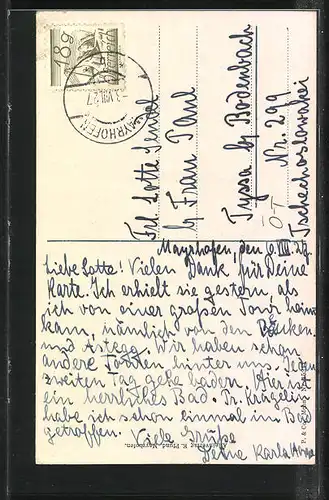 18g
MAYRHOFEN
VIII.27
Frl. Lotte
b/ Frau Paul
Tyssa b/ Bodenbach
Nr. 299
Tschechoslowakei
Mayrhofen, den 10.VIII.27
Liebe Lotte! Vielen Dank für Deine
Karte. Ich erhielt sie gestern als
ich von einer großen Tour heim
kam, nämlich von den
und Astegg. Wir haben schon
andere Touren hinter uns. Jeden
zweiten Tag gehe baden. Hier ist
ein herrliches Bad. Fr.
habe ich schon einmal im Bad
getroffen. Viele Grüße
Deine Karla